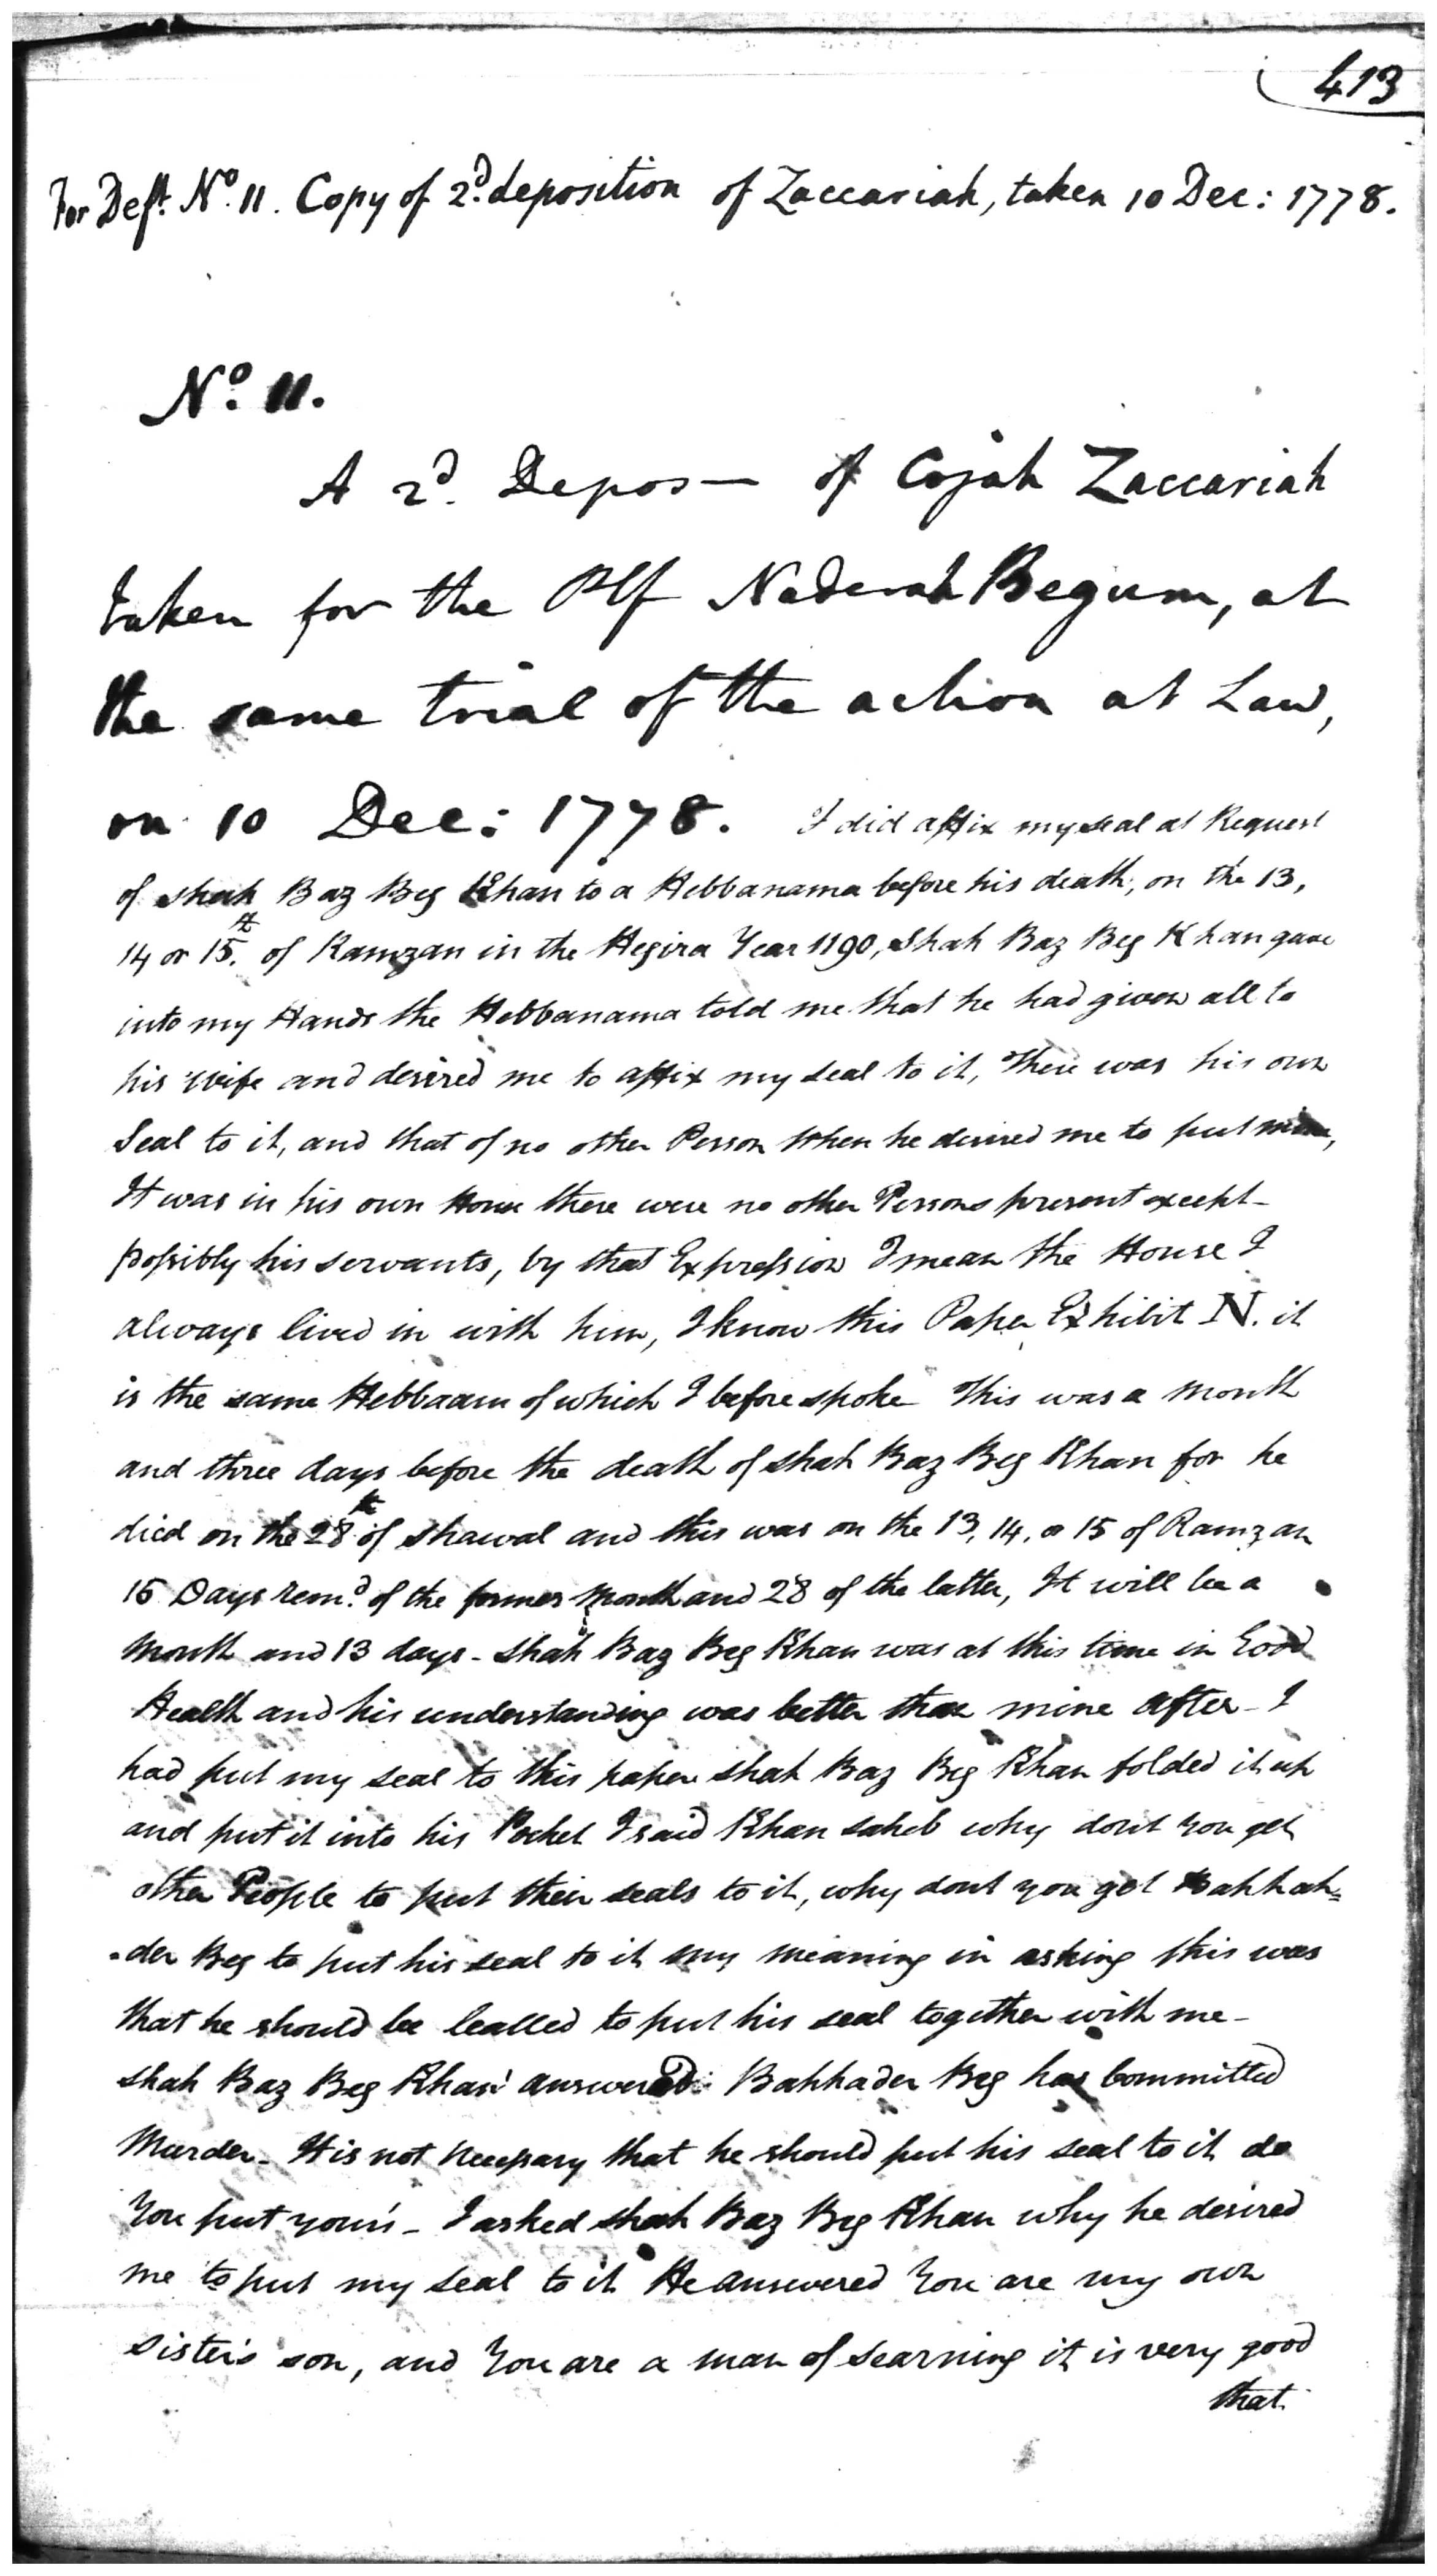 413
For Deft. No. 11. Copy of 2d. deposition of Zaccariah, taken 10 Dec: 1778.
No. 11.
A 2d. Depos— of Cojah Zaccariah
taken for the Plf Naderah Begum, at
the same trial of the action at Law,
on 10 Dec: 1778. I did affix my seal at Request
of Shah Baz Beg Khan to a Hebbanama before his death, on the 13,
14 or 15th. of Ramzan in the Hegira Year 1190, Shah Baz Beg Khan gave
into my Hands the Hebbanama told me that he had given all to
his wife and desired me to affix my seal to it, There was his own
Seal to it, and that of no other Person when he desired me to put mine,
It was in his own House there were no other Persons present except-
possibly his servants, by that Expression I mean the House I
always lived in with him, I know this Paper Exhibit N. it
is the same Hebbaam of which I before spoke This was a Month
and three days before the death of Shah Baz Beg Khan for he
died on the 28th of Shawal and this was on the 13, 14, or 15 of Ramzan
15 Days remd. of the former Month and 28 of the latter, It will be a
Month and 13 days - Shah Baz Beg Khan was at this time in Good
Health and his understanding was better than mine After - I
had put my seal to this paper Shah Baz Beg Khan folded it up
and put it into his Pocket I said Khan Saheb why dont you get
other People to put their seals to it, why dont you get Bahhah=
-der Beg to put his seal to it my meaning in asking this was
that he should be Called to put his seal together with me -
Shah Baz Beg Khan answered Bahhader Beg has Committed
Murder - It is not Necessary that he should put his seal to it do
You put your's - I asked Shah Baz Beg Khan why he desired
me to put my Seal to it He answered You are my own
Sister's son, and You are a man of Learning it is very good
that